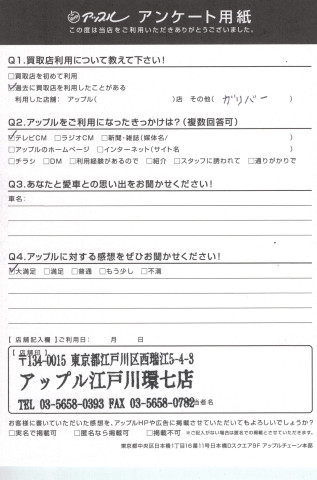 アップル アンケート用紙
この度は当店をご利用いただきありがとうございました。
Q1.買取店利用について教えて下さい!
□買取店を初めて利用
☑過去に買取店を利用したことがある
利用した店舗: アップル( )店 その他( ガリバー )
Q2.アップルをご利用になったきっかけは?(複数回答可)
☑テレビCM □ラジオCM □新聞・雑誌(媒体名/ )
□アップルのホームページ □インターネット(サイト名 )
□チラシ □DM □利用経験があるので □紹介 □スタッフに誘われて □通りがかりで
Q3.あなたと愛車との思い出をお聞かせください!
車名:
Q4.アップルに対する感想をぜひお聞かせください!
☑大満足 □満足 □普通 □もう少し □不満
【 店舗記入欄 】ご利用日: 月 日
【 店舗印 】
〒134-0015 東京都江戸川区西瑞江5-4-3
アップル江戸川環七店
TEL 03-5658-0393 FAX 03-5658-0782
当者名
お客様に書いていただいた感想を、アップルHPや広告に掲載させていただいてもよろしいでしょうか?
□実名で掲載可 □匿名なら掲載可 □掲載不可 ※ご記入がない場合は匿名での掲載とさせていただきます。
東京都中央区日本橋1丁目16番11号日本橋Dスクエア9F アップルチェーン本部